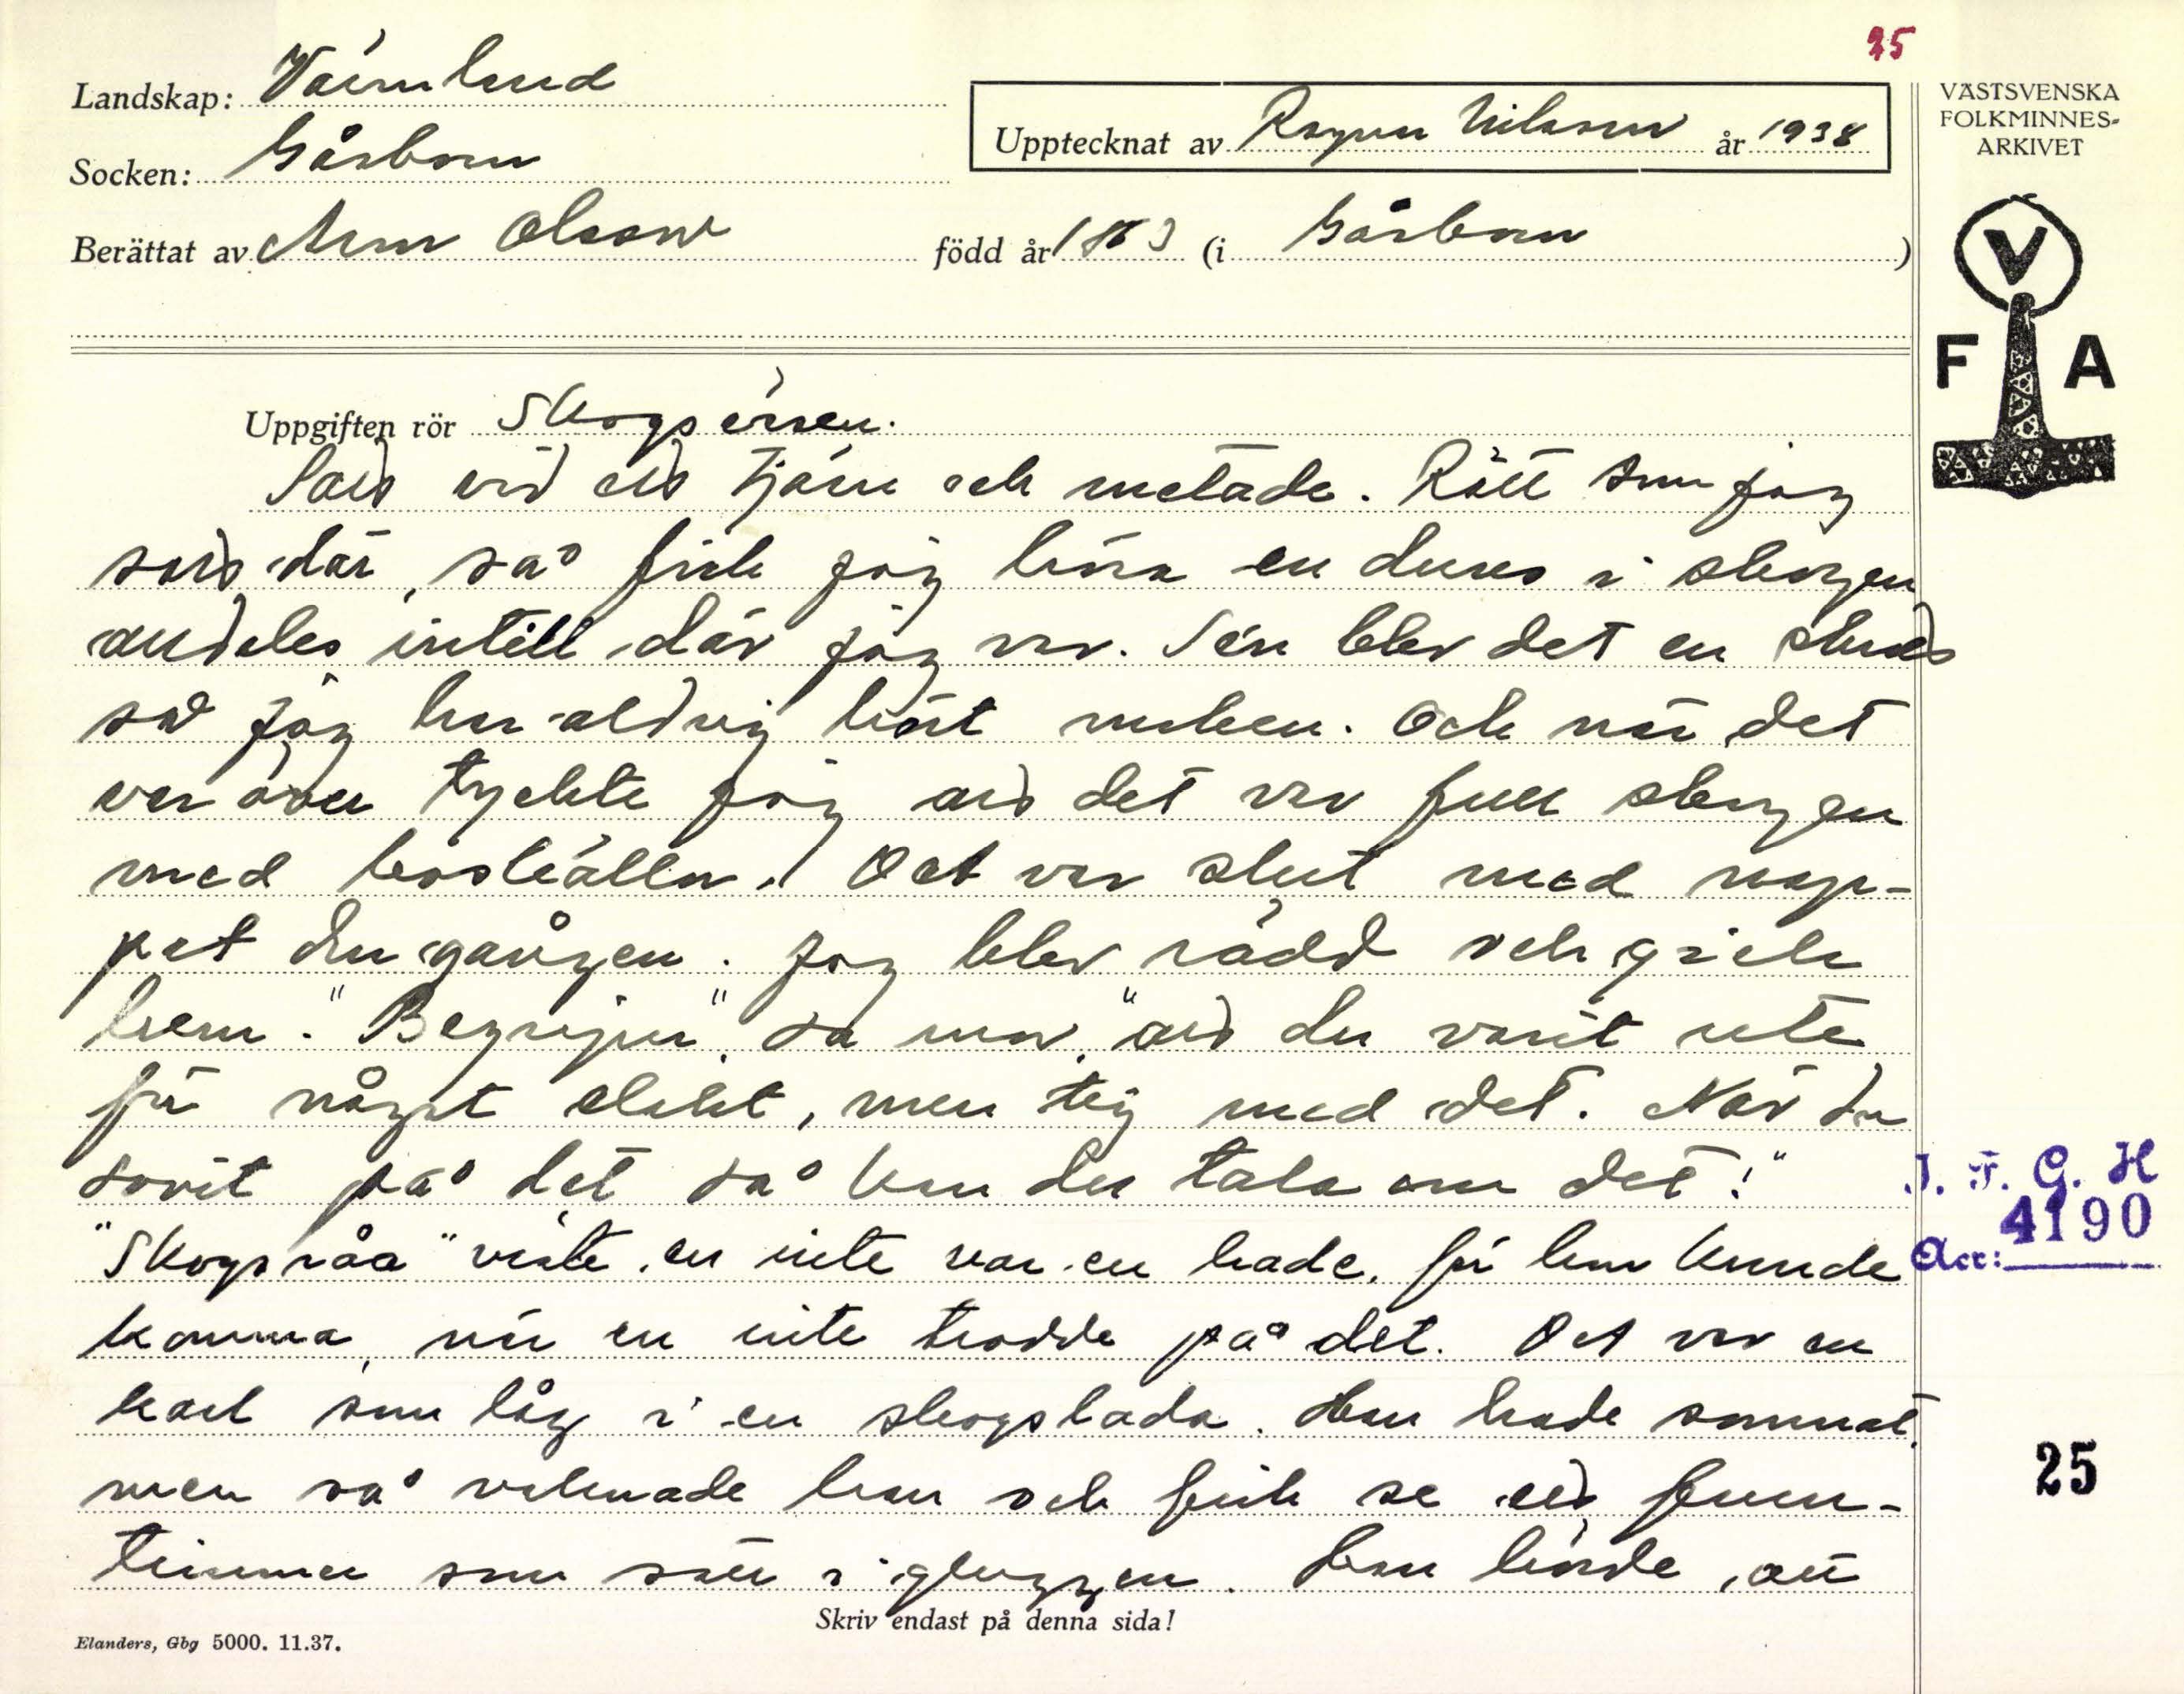 35
Landskap: Värmland
Socken: Gåsborn
Upptecknat av Ragnar Nilsson år 1938
Berättat av Anna Olsson född år 1863 (i Gåsborn)
VÄSTSVENSKA
FOLKMINNES-
ARKIVET
V
F A
Uppgiften rör Skogsråen.
Satt vid ett tjärn och metade. Rätt som jag
satt där, så fick jag höra en duns i skogen
alldeles intill där jag var. Sen blev det en
så jag har aldrig hört maken. Och när det
var över tyckte jag att det var full skogen
med koskällor. Det var slut med nap-
pet den gången. Jag blev rädd och gick
hem. "Begriper", sa mor, "att du varit ute
för något elakt, men tig med det. Når du
sovit på det så kan du tala om det."
"Skogsråa" visste en inte var en hade, för hon kunde
komma, när en inte trodde på det. Det var en
karl som låg i en skogslada. Han hade somnat,
men så vaknade han och fick se ett fruen-
timmer som satt i gluggen. Han hörde, att
J. F. G. H
Acc: 4190
25
Skriv endast på denna sida!
Elanders, Gbg 5000. 11.37.